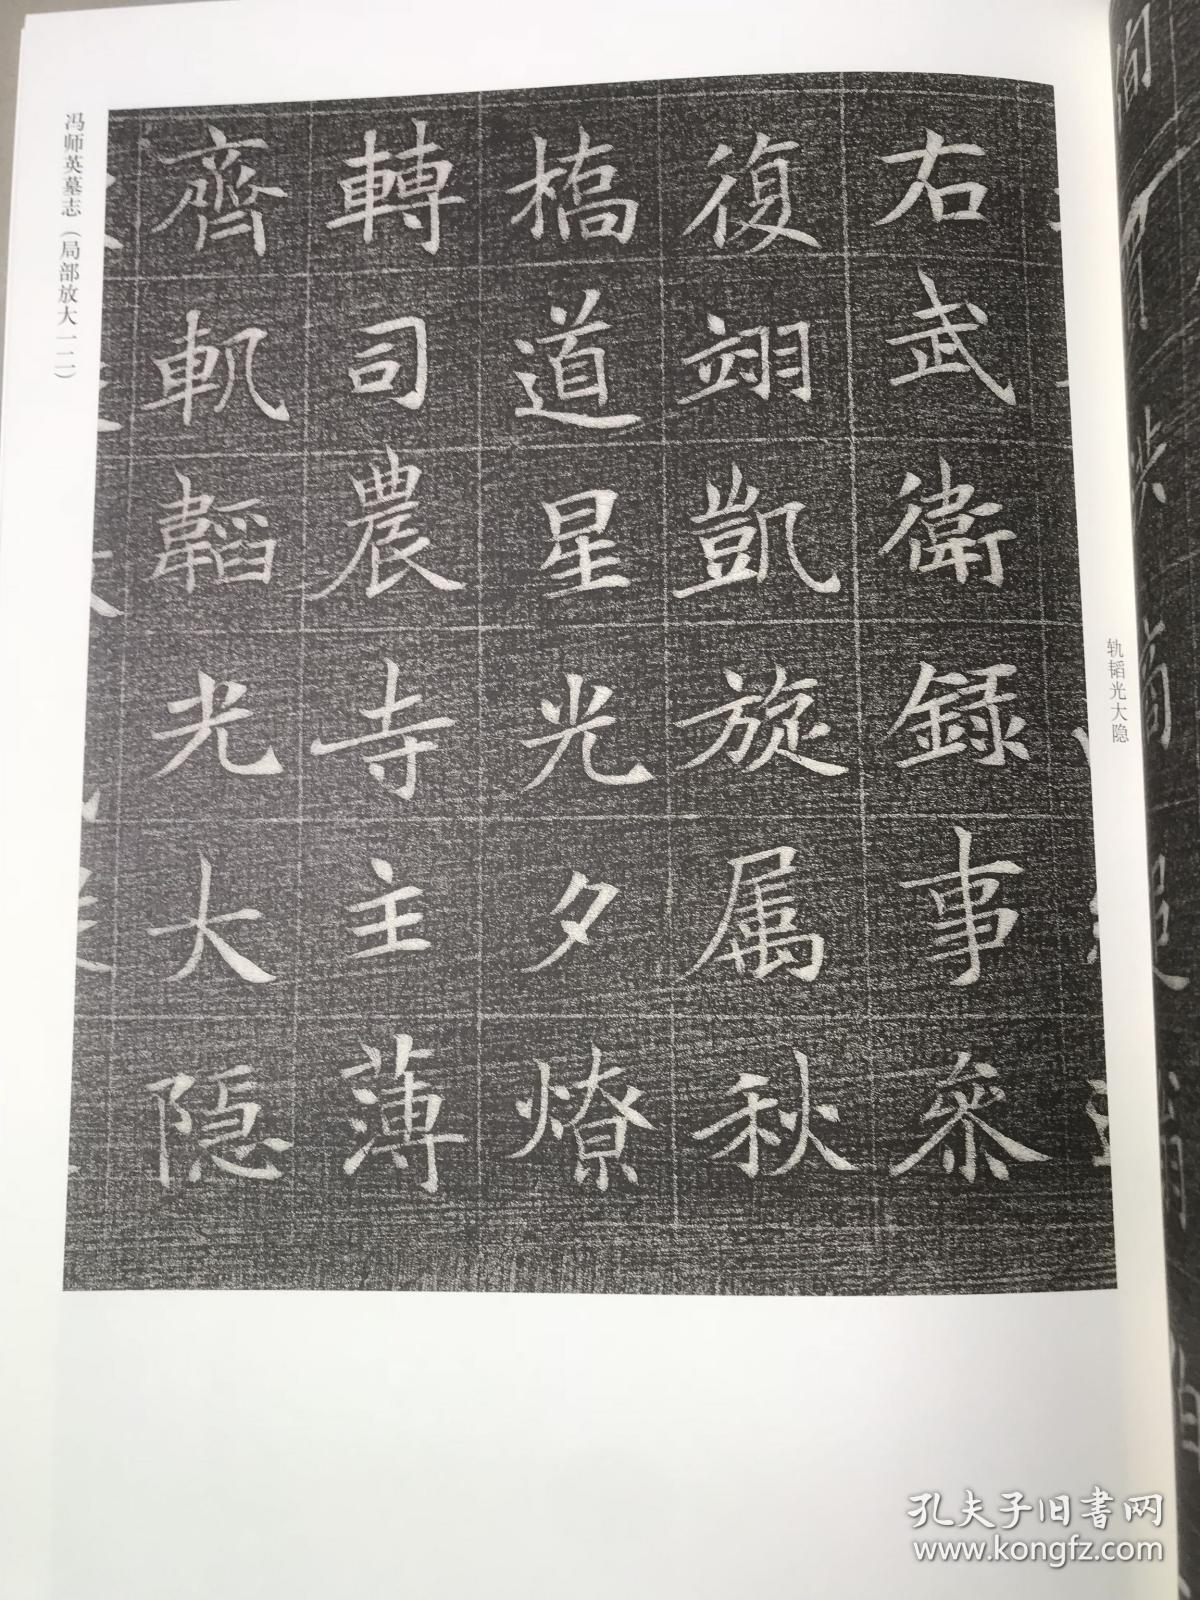 右武衛録事叅
復翊凱旋属秋
橋道星光夕燎
轉司農寺主薄
齊軌韜光大隠
冯师英墓志（局部放大一二）
轨韬光大隐
孔夫子旧书网
www.kongfz.com